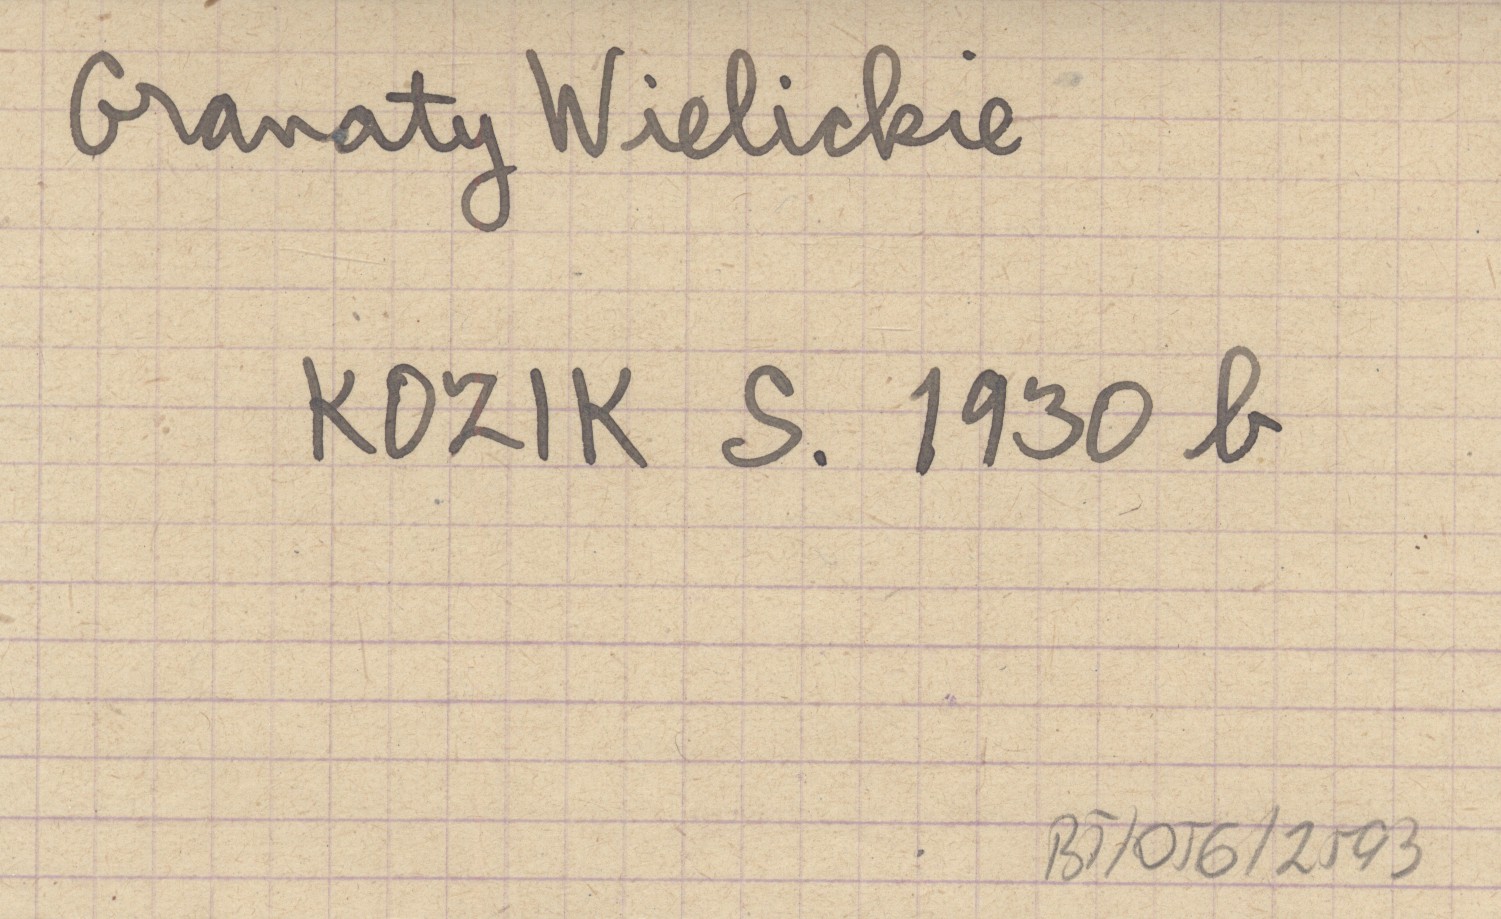 Granaty Wielickie
KOZIK S. 1930 b
BT/OSG/2593